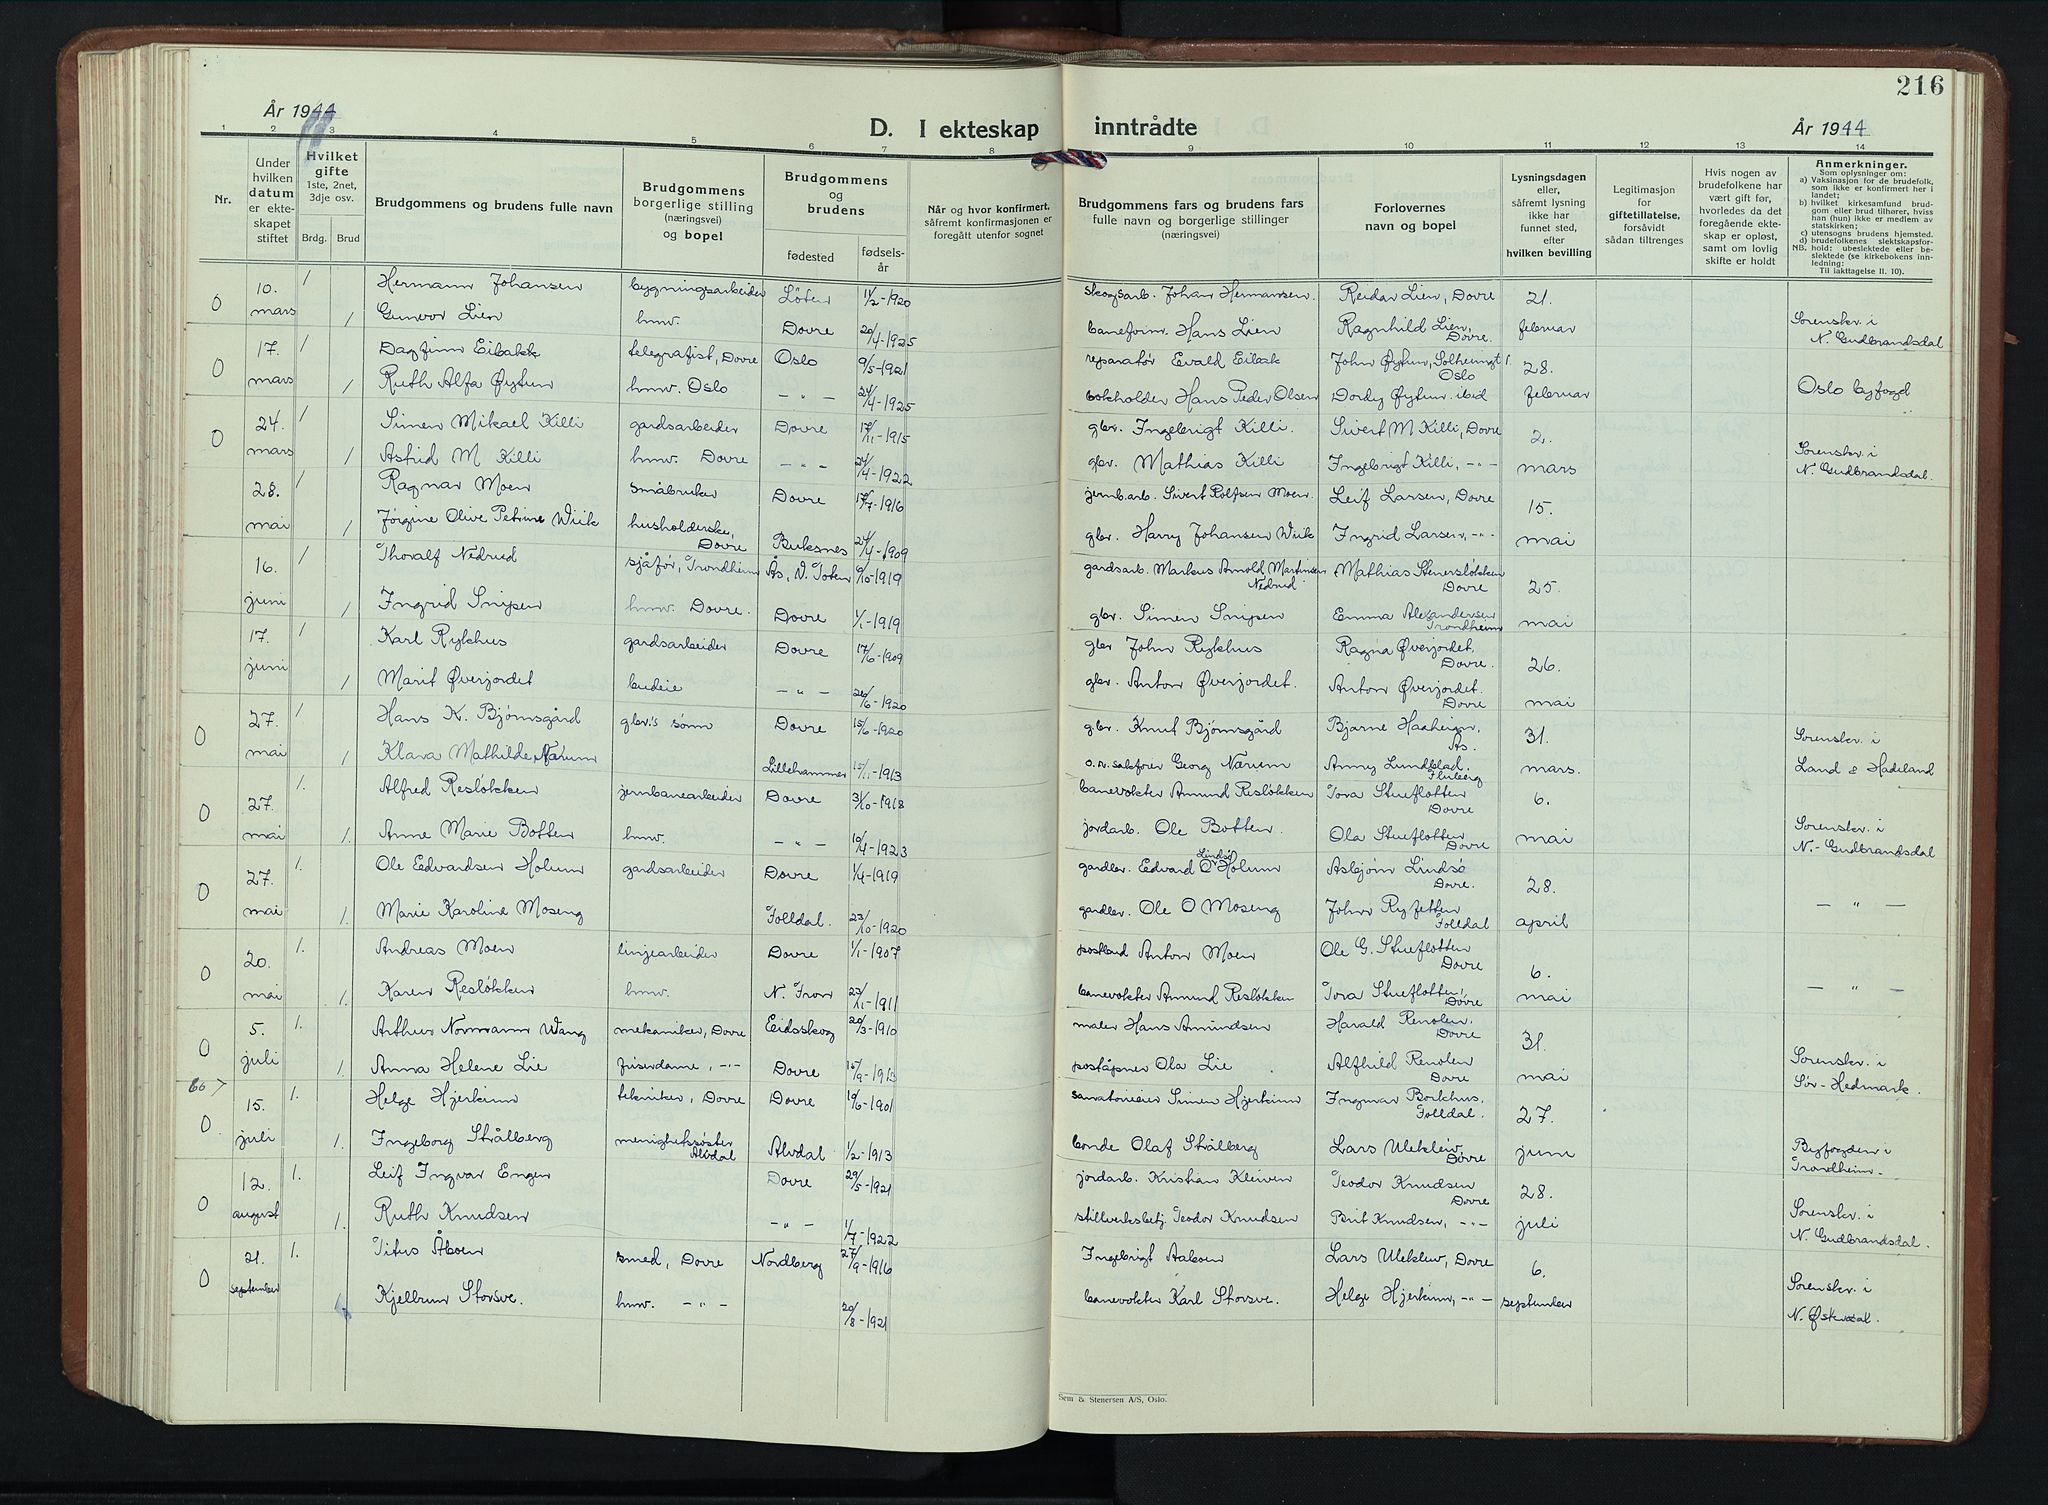 216
År 1944
D. I ekteskap inntrådte
År 1944
1 2 3 4 5 6 7 8 9 10 11 12 13 14
Nr.
Under hvilken datum er ekteskapet stiftet
Hvilket gifte
1ste, 2net, 3dje osv.
Brdg. Brud
Brudgommens og brudens fulle navn
Brudgommens borgerlige stilling (næringsvei) og bopel
Brudgommens og brudens
fødested
fødselsår
Når og hvor konfirmert, såfremt konfirmasjonen er foregått utenfor sognet
Brudgommens fars og brudens fars fulle navn og borgerlige stillinger (næringsvei)
Forlovernes navn og bopel
Lysningsdagen eller, såfremt lysning ikke har funnet sted, efter hvilken bevilling
Legitimasjon for giftetillatelse, forsåvidt sådan tiltrenges
Hvis nogen av brudefolkene har vært gift før, hvorledes da det foregående ekteskap er opløst, samt om lovlig skifte er holdt
Anmerkninger.
Som oplysning om:
a) Vaksinasjon for de brudefolk, som ikke er konfirmert her i landet;
b) hvilket kirkesamfund brudgom eller brud tilhører, hviss han (hun) ikke er medlem av statskirken;
c) utensogns brudens hjemsted.
d) brudefolkenes slektskapsforhold: ubeslektede eller beslektede (se kirkebokens innledning:
NB.
Til iakttagelse II. 10).
0 10. mars 1 Hermann Johansen bygningsarbeider Löten 11/2-1920 skogsarb. Johan Hermansen Reidar Lien, Dovre 21.
1 Gunvor Lien hmv. Dovre 20/4-1925 baneform. Hans Lien Ragnhild Lien, Dovre februar Sorenskr. i N. Gudbrandsdal
0 17. mars 1 Dagfinn Eibakk telegrafist, Dovre Oslo 9/5-1921 reparatør Evald Eibak John Øytun, Solheimgt 1. Oslo 28.
1 Ruth Alfa Øytun hmv. Oslo - " - 24/4-1925 bokholder Hans Peder Olsen Dordy Øytun ibid februar Oslo byfogd
0 24. mars 1 Simen Mikael Killi gardsarbeider Dovre 17/11-1915 gbr. Ingebrigt Killi. Sivert M Killi, Dovre 2.
1 Astrid M Killi hmv. Dovre - " - 24/4-1922 gbr. Mathias Killi Ingebrigt Killi, - " - mars Sorenskr. i N. Gudbrandsdal.
28. mai 1 Ragnar Moen småbruker Dovre 17/7-1916 jernb.arb. Sivert Rolfsen Moen. Leif Larsen, Dovre 15.
1 Jørgine Olive Petrine Wiik husholderske, Dovre Buksnes 24/4-1909 gbr. Harry Johansen Wiik Ingrid Larsen, - " - mai
16. juni 1 Thoralf Nedrud sjåfør, Trondheim Ås, V. Toten 9/10-1919 gardsarb. Markus Arnold Martinsen Nedrud Mathias Stenersløkken Dovre 25.
1 Ingrid Snipen hmv. Dovre. Dovre 1/1-1919 gbr. Simen Snipen Emma Alexandersen Trondheim mai
17. juni 1 Karl Rykhus gardsarbeider Dovre 17/6-1909 gbr John Rykhus Ragna Øverjordet, Dovre. 26.
1 Marit Øverjordet budeie - " - 26/6-1920 gbr. Anton Øverjordet. Anton Øverjordet. Dovre mai
0 27. mai 1 Hans K. Bjørnsgård gbr.'s sønn Dovre 15/6-1920 gbr. Knut Bjørnsgård Bjarne Haaheim, Ås. 31.
1 Klara Mathilde Nærum Lillehammer 15/11-1913 o.r. sakfører Georg Nærum Anny Lundblad. Fluberg mars. Sorenskr. i Land & Hadeland
0 27. mai 1. Alfred Resløkken jernbanearbeider Dovre 31/10-1918 banevokter Amund Resløkken Tora Stueflotten Dovre 6.
1. Anne Marie Botten hmv. - " - 10/4-1923 jordarb. Ole Botten. Ola Stueflotten Dovre mai Sorenskr. i N.-Gudbrandsdal
0 27. mai 1. Ole Edvardsen Holum gardsarbeider Dovre 1/4-1919 gardbr. Edvard O Lindsø Holum Asbjørn Lindsö Dovre. 28.
1. Marie Karoline Moseng Folldal. 23/10-1920 gardbr. Ole O Moseng Johan Ryfetten Folldal april - " -
0 20. mai 1. Andreas Moen linjearbeider Dovre 1/1-1907 postbud Anton Moen Ole G. Stueflotten Dovre 6.
1. Karen Resløkken hmv. N. Fron 27/11-1911 banevokter Amund Resløkken Tora Stueflotten, Dovre mai - " -
0 5. juli 1. Arthur Normann Wang mekaniker, Dovre Eidsskog 20/3-1910 maler Hans Amundsen Harald Renolen. Dovre 31.
1. Anna Helene Lie friserdame, - " - Dovre 15/9-1913 poståpner Ola Lie Alfhild Renolen Dovre mai Sorenskr. i Sør-Hedmark.
0 15. juli 1. Helge Hjerkinn tekniker, Dovre Dovre 19/6-1901 sanatorieeier Simen Hjerkinn Ingmar Borkhus, Folldal. 27.
1. Ingeborg Strålberg menighetssøster Alvdal Alvdal 1/2-1913 bonde Olaf Strålberg Lars Ulekleiv, Dovre juni Byfogden i Trondheim.
0 12. august 1. Leif Ingvar Engen Dovre 29/5-1921 jordarb. Kristian Kleiven Teodor Knudsen Dovre 28.
1. Ruth Knudsen - " - 1/7-1922 stillverksbetj. Teodor Knudsen Brit Knudsen, - " - juli Sorenskr. i N. Gudbrandsdal.
0 21. september 1. Titus Åboen smed, Dovre Nordberg 27/9-1916 Ingebrigt Aaboen Lars Uleklev, Dovre 6.
Kjellrun Storsve. hmv. - " - 20/8-1921 banevokter Karl Storsve. Helge Hjerkinn, - " - september Sorenskr. i N. Østerdal.
Sem & Stenersen A/S, Oslo.